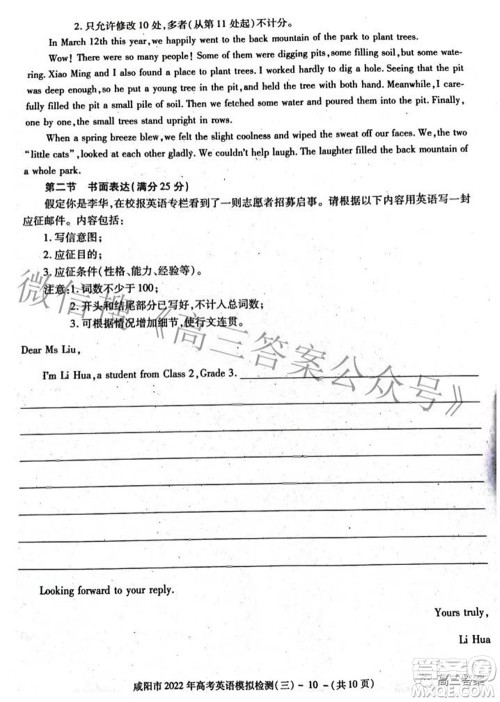 2. 只允许修改 10 处，多者(从第 11 处起)不计分。
In March 12th this year, we happily went to the back mountain of the park to plant trees.
Wow! There were so many people! Some of them were digging pits, some filling soil, but some wate-
ring. Xiao Ming and I also found a place to plant trees. I began to dig. Seeing that the pit
was deep enough, so he put a young tree in the pit, and held the tree with both hand. Meanwhile, I ca-
refully filled the pit a small pile of soil. Then we fetched some water and poured them into the pit. Finally,
one by one, the small trees stand upright in rows.
When a spring breeze blew, we felt the slight coolness and wiped the sweat off our faces. We, the two
"little cats", looked at each other gladly. We couldn't help laugh. The laughter filled the back mountain of
a whole park.
第二节 书面表达(满分 25 分)
假定你是李华，在校报英语专栏看到了一则志愿者招募启事。请根据以下内容用英语写一封
应征邮件。内容包括：
1. 写信意图；
2. 应征目的；
3. 应征条件(性格、能力、经验等)。
注意：1. 词数不少于 100；
2. 开头和结尾部分已写好，不计入总词数；
3. 可根据情况增加细节，使行文连贯。
Dear Ms Liu,
I'm Li Hua, a student from Class 2, Grade 3.
Looking forward to your reply.
Yours truly,
Li Hua
咸阳市 2022 年高考英语模拟检测(三) - 10 - (共 10 页)
微信搜《高三答案公众号》
高三答案